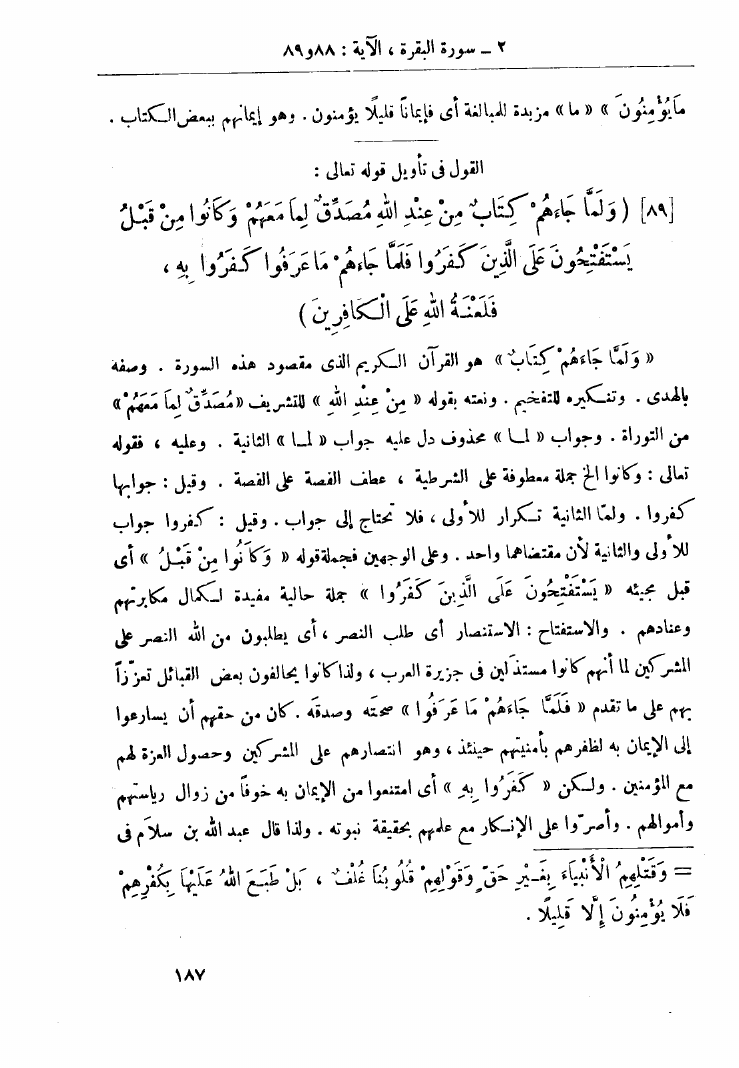 ٢ ــ سورة البقرة ، الآية : ٨٨و٨٩
مَايُؤْمِنُونَ » « ما » مزيدة للمبالغة أى فإيماناً قليلًا يؤمنون . وهو إيمانهم ببعض الـكتاب .
القول فى تأويل قوله تعالى :
[٨٩] ( وَلَمَّا جَاءَهُمْ كِتَابٌ مِنْ عِنْدِ اللهِ مُصَدِّقٌ لِمَا مَعَهُمْ وَكَانُوا مِنْ قَبْلُ
يَسْتَفْتِحُونَ عَلَى الَّذِينَ كَـفَرُوا فَلَمَّا جَاءَهُمْ مَا عَرَفُوا كَـفَرُوا بِهِ ،
فَلَعْنَـةُ اللهِ عَلَى الْـكَافِرِينَ )
« وَلَمَّا جَاءَهُمْ كِتَابٌ » هو القرآن الـكريم الذى مقصود هذه السورة . وصفه
بالهدى . وتنـكيره للتفخيم . ونعته بقوله « مِنْ عِنْدِ اللهِ » للتشريف «مُصَدِّقٌ لِمَا مَعَهُمْ»
من التوراة . وجواب « لمـا » محذوف دل عليه جواب « لمـا » الثانية . وعليه ، فقوله
تعالى : وكانوا الخ جملة معطوفة على الشرطية ، عطف القصة على القصة . وقيل : جوابها
كفروا . ولمّا الثانية تـكرار للأولى ، فلا تحتاج إلى جواب . وقيل : كـفروا جواب
للأولى والثانية لأن مقتضاهما واحد . وعلى الوجهين فجملة قوله « وَكَانُوا مِنْ قَبْـلُ » أى
قبل مجيئه « يَسْتَفْتِحُونَ عَلَى الَّذِينَ كَفَرُوا » جملة حالية مفيدة لـكمال مكابرتهم
وعنادهم . والاستفتاح : الاستنصار أى طلب النصر ، أى يطلبون من الله النصر على
المشركين لما أنهم كانوا مستذَلين فى جزيرة العرب ، ولذا كانوا يحالفون بعض القبائل تعزّزاً
بهم على ما تقدم « فَلَمَّا جَاءَهُمْ مَا عَرَفُوا » صحتَه وصدقَه . كان من حقهم أن يسارعوا
إلى الإيمان به لظفرهم بأمنيتهم حينئذ ، وهو انتصارهم على المشركين وحصول العزة لهم
مع المؤمنين . ولـكن « كَفَرُوا بِهِ » أى امتنعوا من الإيمان به خوفاً من زوال رياستهم
وأموالهم . وأصرّوا على الإنـكار مع علمهم بحقيقة نبوته . ولذا قال عبد الله بن سلام فى
= وَقَتْلِهِمُ الْأَنْبِيَاءَ بِغَـيْرِ حَقّ وَقَوْلِهِمْ قُلُوبُنَا غُلْفٌ ، بَلْ طَبَعَ اللهُ عَلَيْهَا بِكُفْرِهِمْ
فَلَا يُؤْمِنُونَ إِلَّا قَلِيلًا .
١٨٧